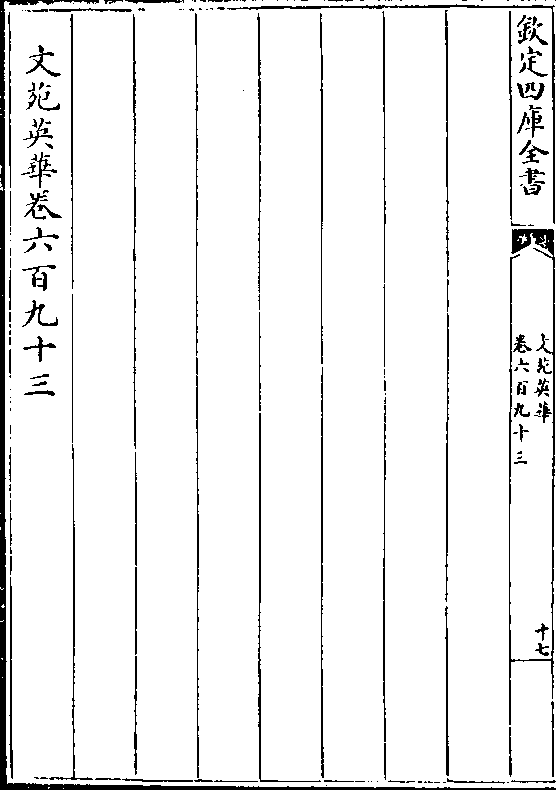 欽定四庫全書
文苑英華
卷六百九十三
十七
文苑英華卷六百九十三